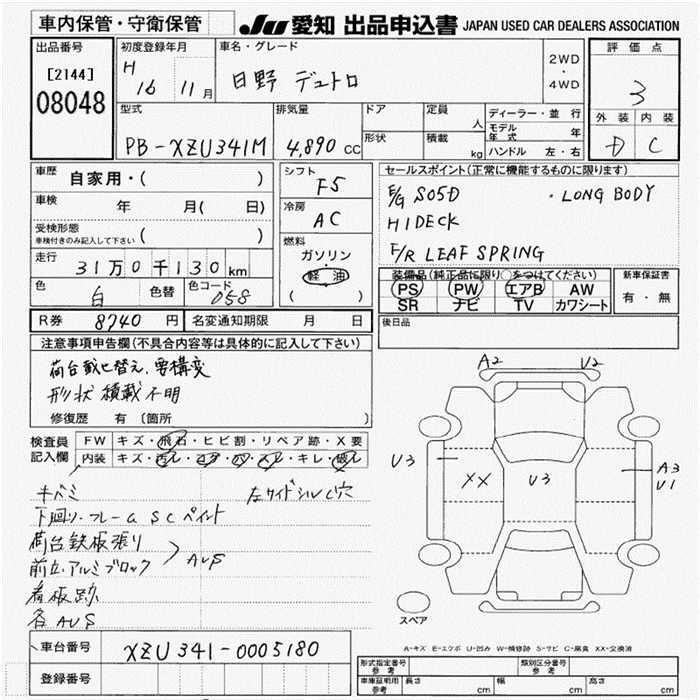 車内保管・守衛保管 JU 愛知 出品申込書 JAPAN USED CAR DEALERS ASSOCIATION
出品番号 初度登録年月 車名・グレード 評価点
[2144] H 16 11月 日野 デュトロ 2WD・4WD 3
08048 外装 内装
型式 排気量 ドア 定員 人 ディーラー・並行
D C
PB-XZU341M 4,890 CC 形状 積載 kg モデル年式 年
ハンドル 左・右
車歴 自家用・( ) シフト F5 セールスポイント(正常に機能するものに限ります)
車検 年 月( 日) 冷房 AC E/G S05D ・LONG BODY
受検形態 車検付きのみ記入して下さい ( ) HIDECK
燃料 ガソリン・軽油 ( ) F/R LEAF SPRING
走行 31万0千130km
装備品(純正品に限り○をつけてください) 新車保証書
色 白 色替 色コード 058 PS PW エアB AW 有・無
SR ナビ TV カワシート
R券 8740円 名変通知期限 月 日 後日品
注意事項申告欄(不具合内容等は具体的に記入して下さい)
荷台載せ替え、要構変
形状 積載 不明
修復歴 有 〔箇所 〕
検査員記入欄 FW キズ・飛石・ヒビ割・リペア跡・X要
内装 キズ・汚レ・コゲ・穴・スレ・キレ・破レ
キバミ 左サイドシルC穴
下回り・フレーム SC ペイント
荷台鉄板張り
前立、アルミブロック AUS
看板跡
各AUS
A2 V2
U3 XX U3 A3
U1
スペア
A-キズ E-エクボ U-凹み W-補修跡 S-サビ C-腐食 XX-交換済
車台番号 XZU341-0005180
登録番号
形式指定番号 参考 類別区分番号 参考
車庫証明用 参考 長さ cm 幅 cm 高さ cm